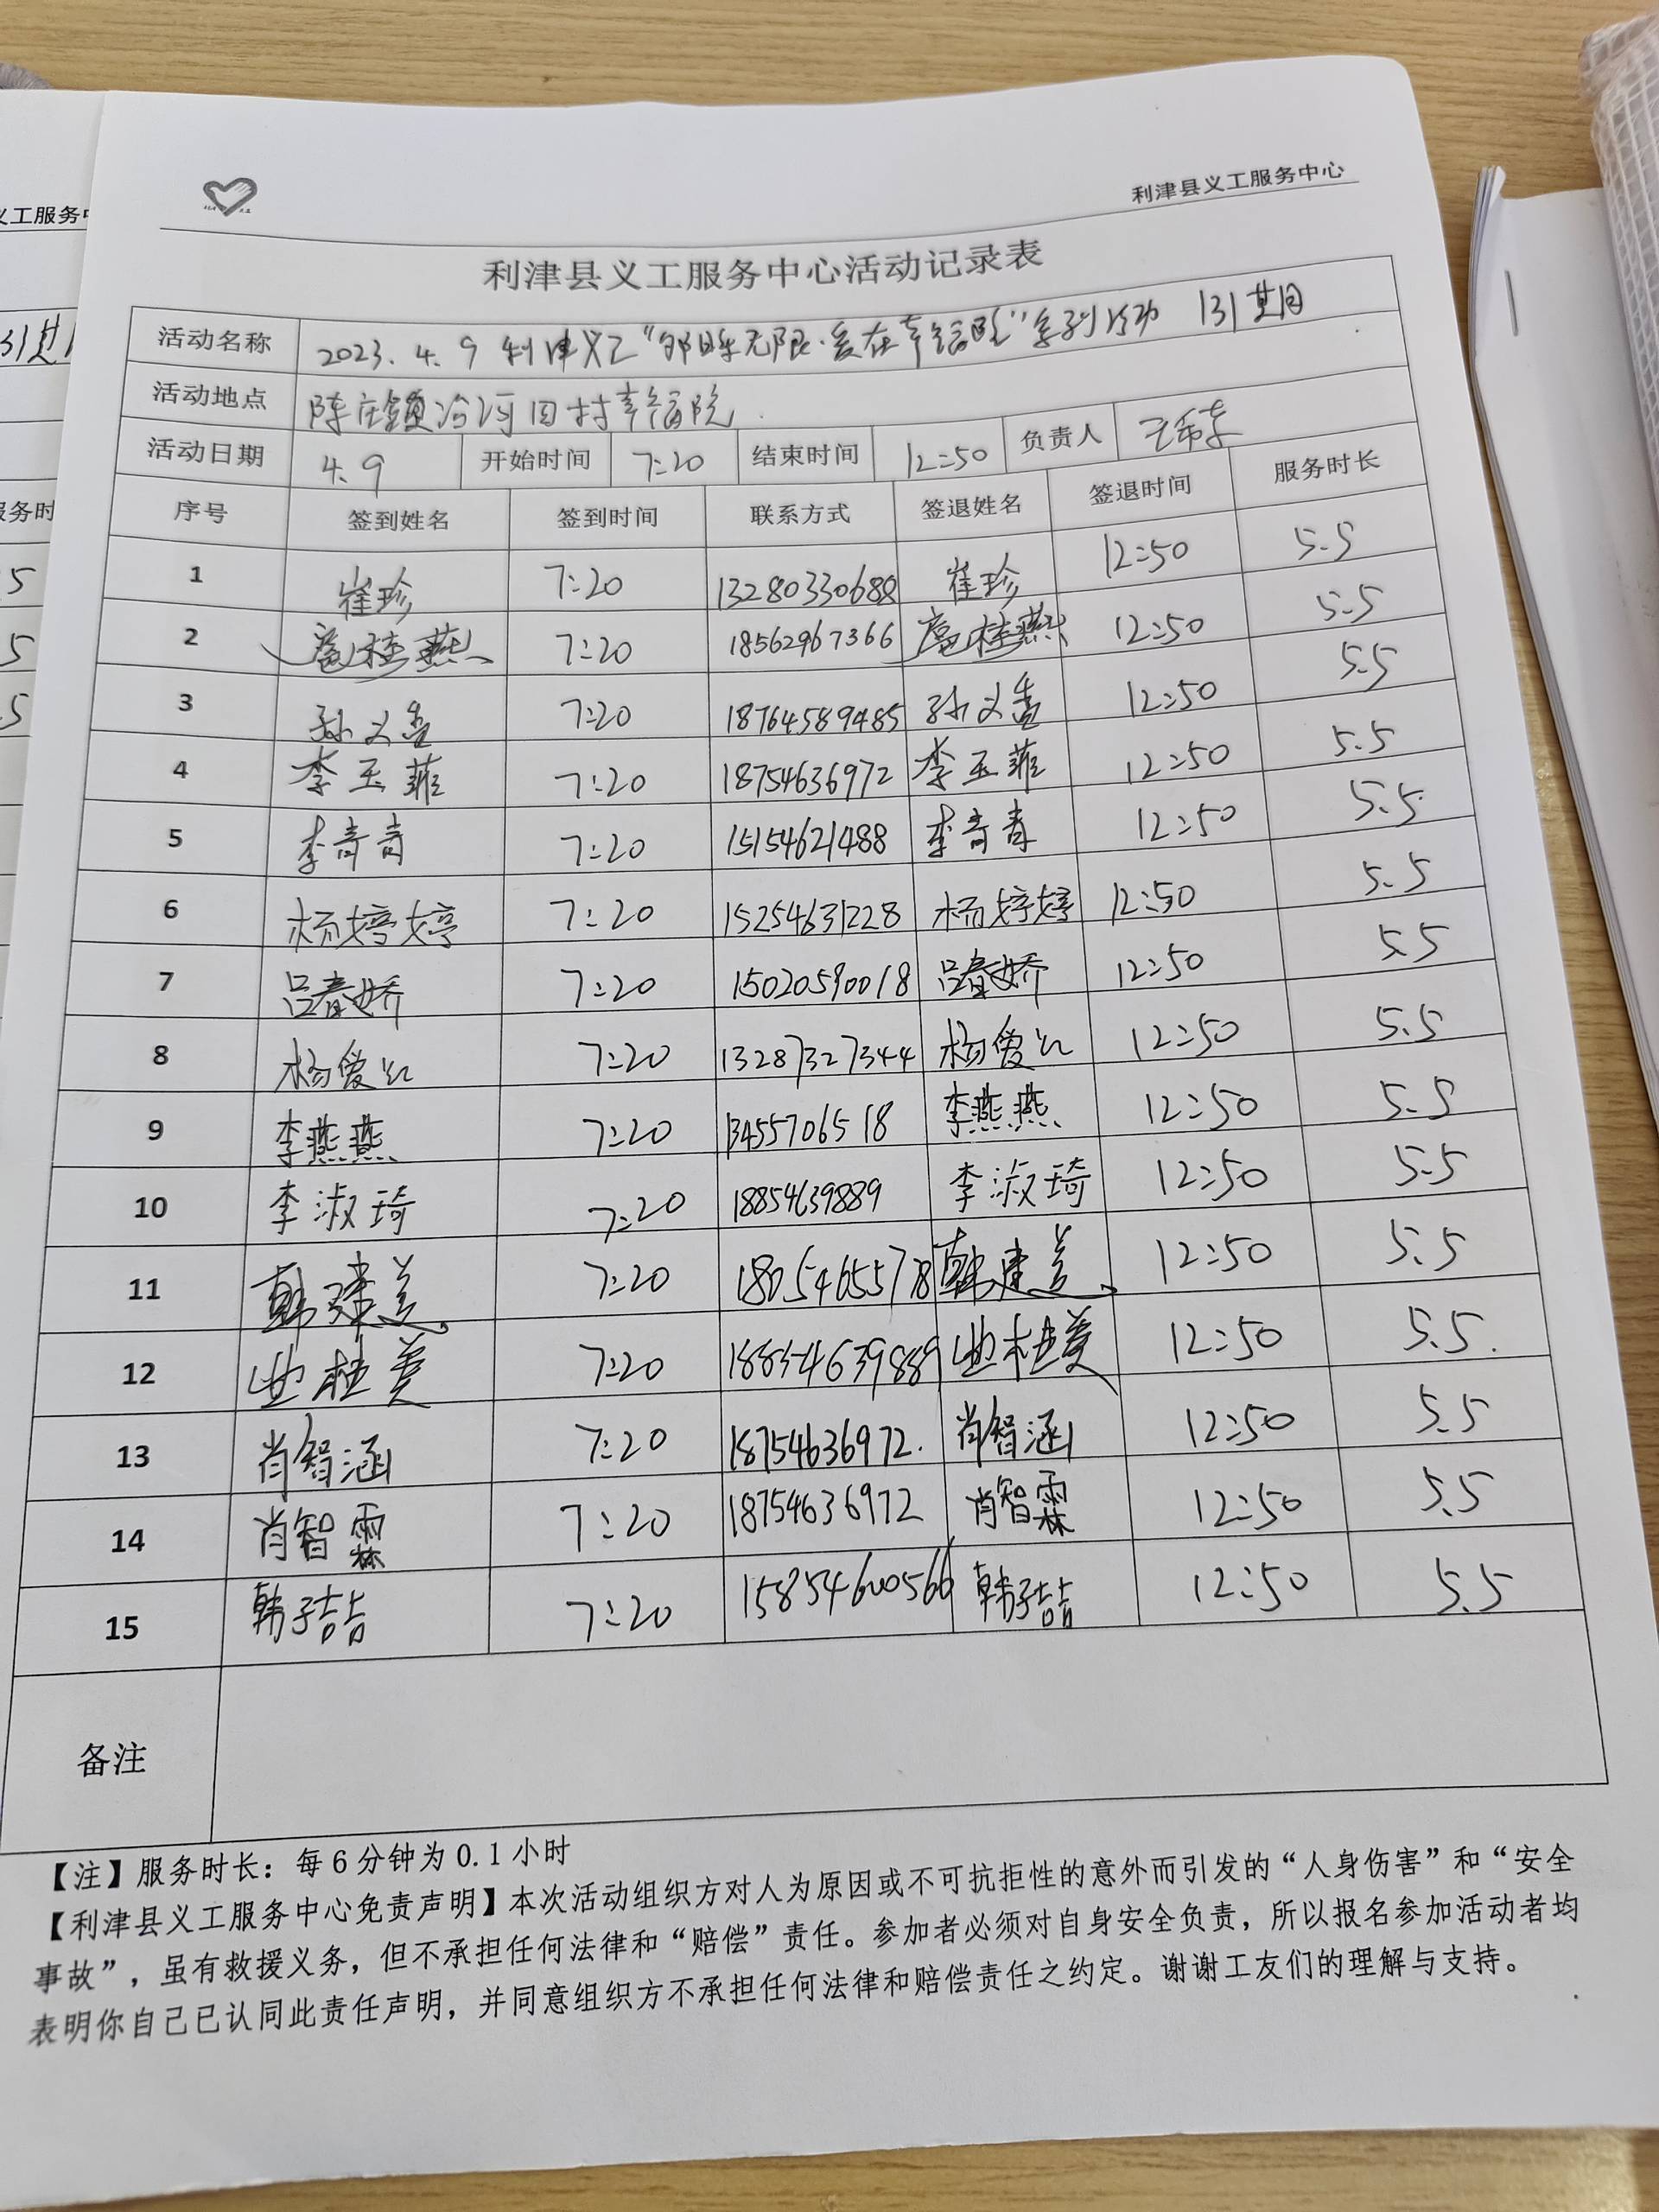 利津县义工服务中心
利津县义工服务中心活动记录表
活动名称 2023.4.9 利津义工“夕阳无限·爱在幸福院”系列活动 131期
活动地点 陈庄镇 村幸福院
活动日期 4.9 开始时间 7:20 结束时间 12:50 负责人
序号 签到姓名 签到时间 联系方式 签退姓名 签退时间 服务时长
1 崔珍 7:20 13280330688 崔珍 12:50 5.5
2 扈桂燕 7:20 18562967366 扈桂燕 12:50 5.5
3 孙义 7:20 18764589485 孙义 12:50 5.5
4 李玉菲 7:20 18754636972 李玉菲 12:50 5.5
5 李青青 7:20 15154621488 李青青 12:50 5.5
6 杨婷婷 7:20 15254631228 杨婷婷 12:50 5.5
7 吕春娇 7:20 15020590018 吕春娇 12:50 5.5
8 杨爱红 7:20 13287327344 杨爱红 12:50 5.5
9 李燕燕 7:20 13455706518 李燕燕 12:50 5.5
10 李淑琦 7:20 18854639889 李淑琦 12:50 5.5
11 韩建美 7:20 18054655778 韩建美 12:50 5.5
12 桂美 7:20 18854639889 桂美 12:50 5.5
13 肖智涵 7:20 18754636972. 肖智涵 12:50 5.5
14 肖智霖 7:20 18754636972 肖智霖 12:50 5.5
15 韩子喆 7:20 15854600566 韩子喆 12:50 5.5
备注
【注】服务时长：每6分钟为0.1小时
【利津县义工服务中心免责声明】本次活动组织方对人为原因或不可抗拒性的意外而引发的“人身伤害”和“安全
事故”，虽有救援义务，但不承担任何法律和“赔偿”责任。参加者必须对自身安全负责，所以报名参加活动者均
表明你自己已认同此责任声明，并同意组织方不承担任何法律和赔偿责任之约定。谢谢工友们的理解与支持。